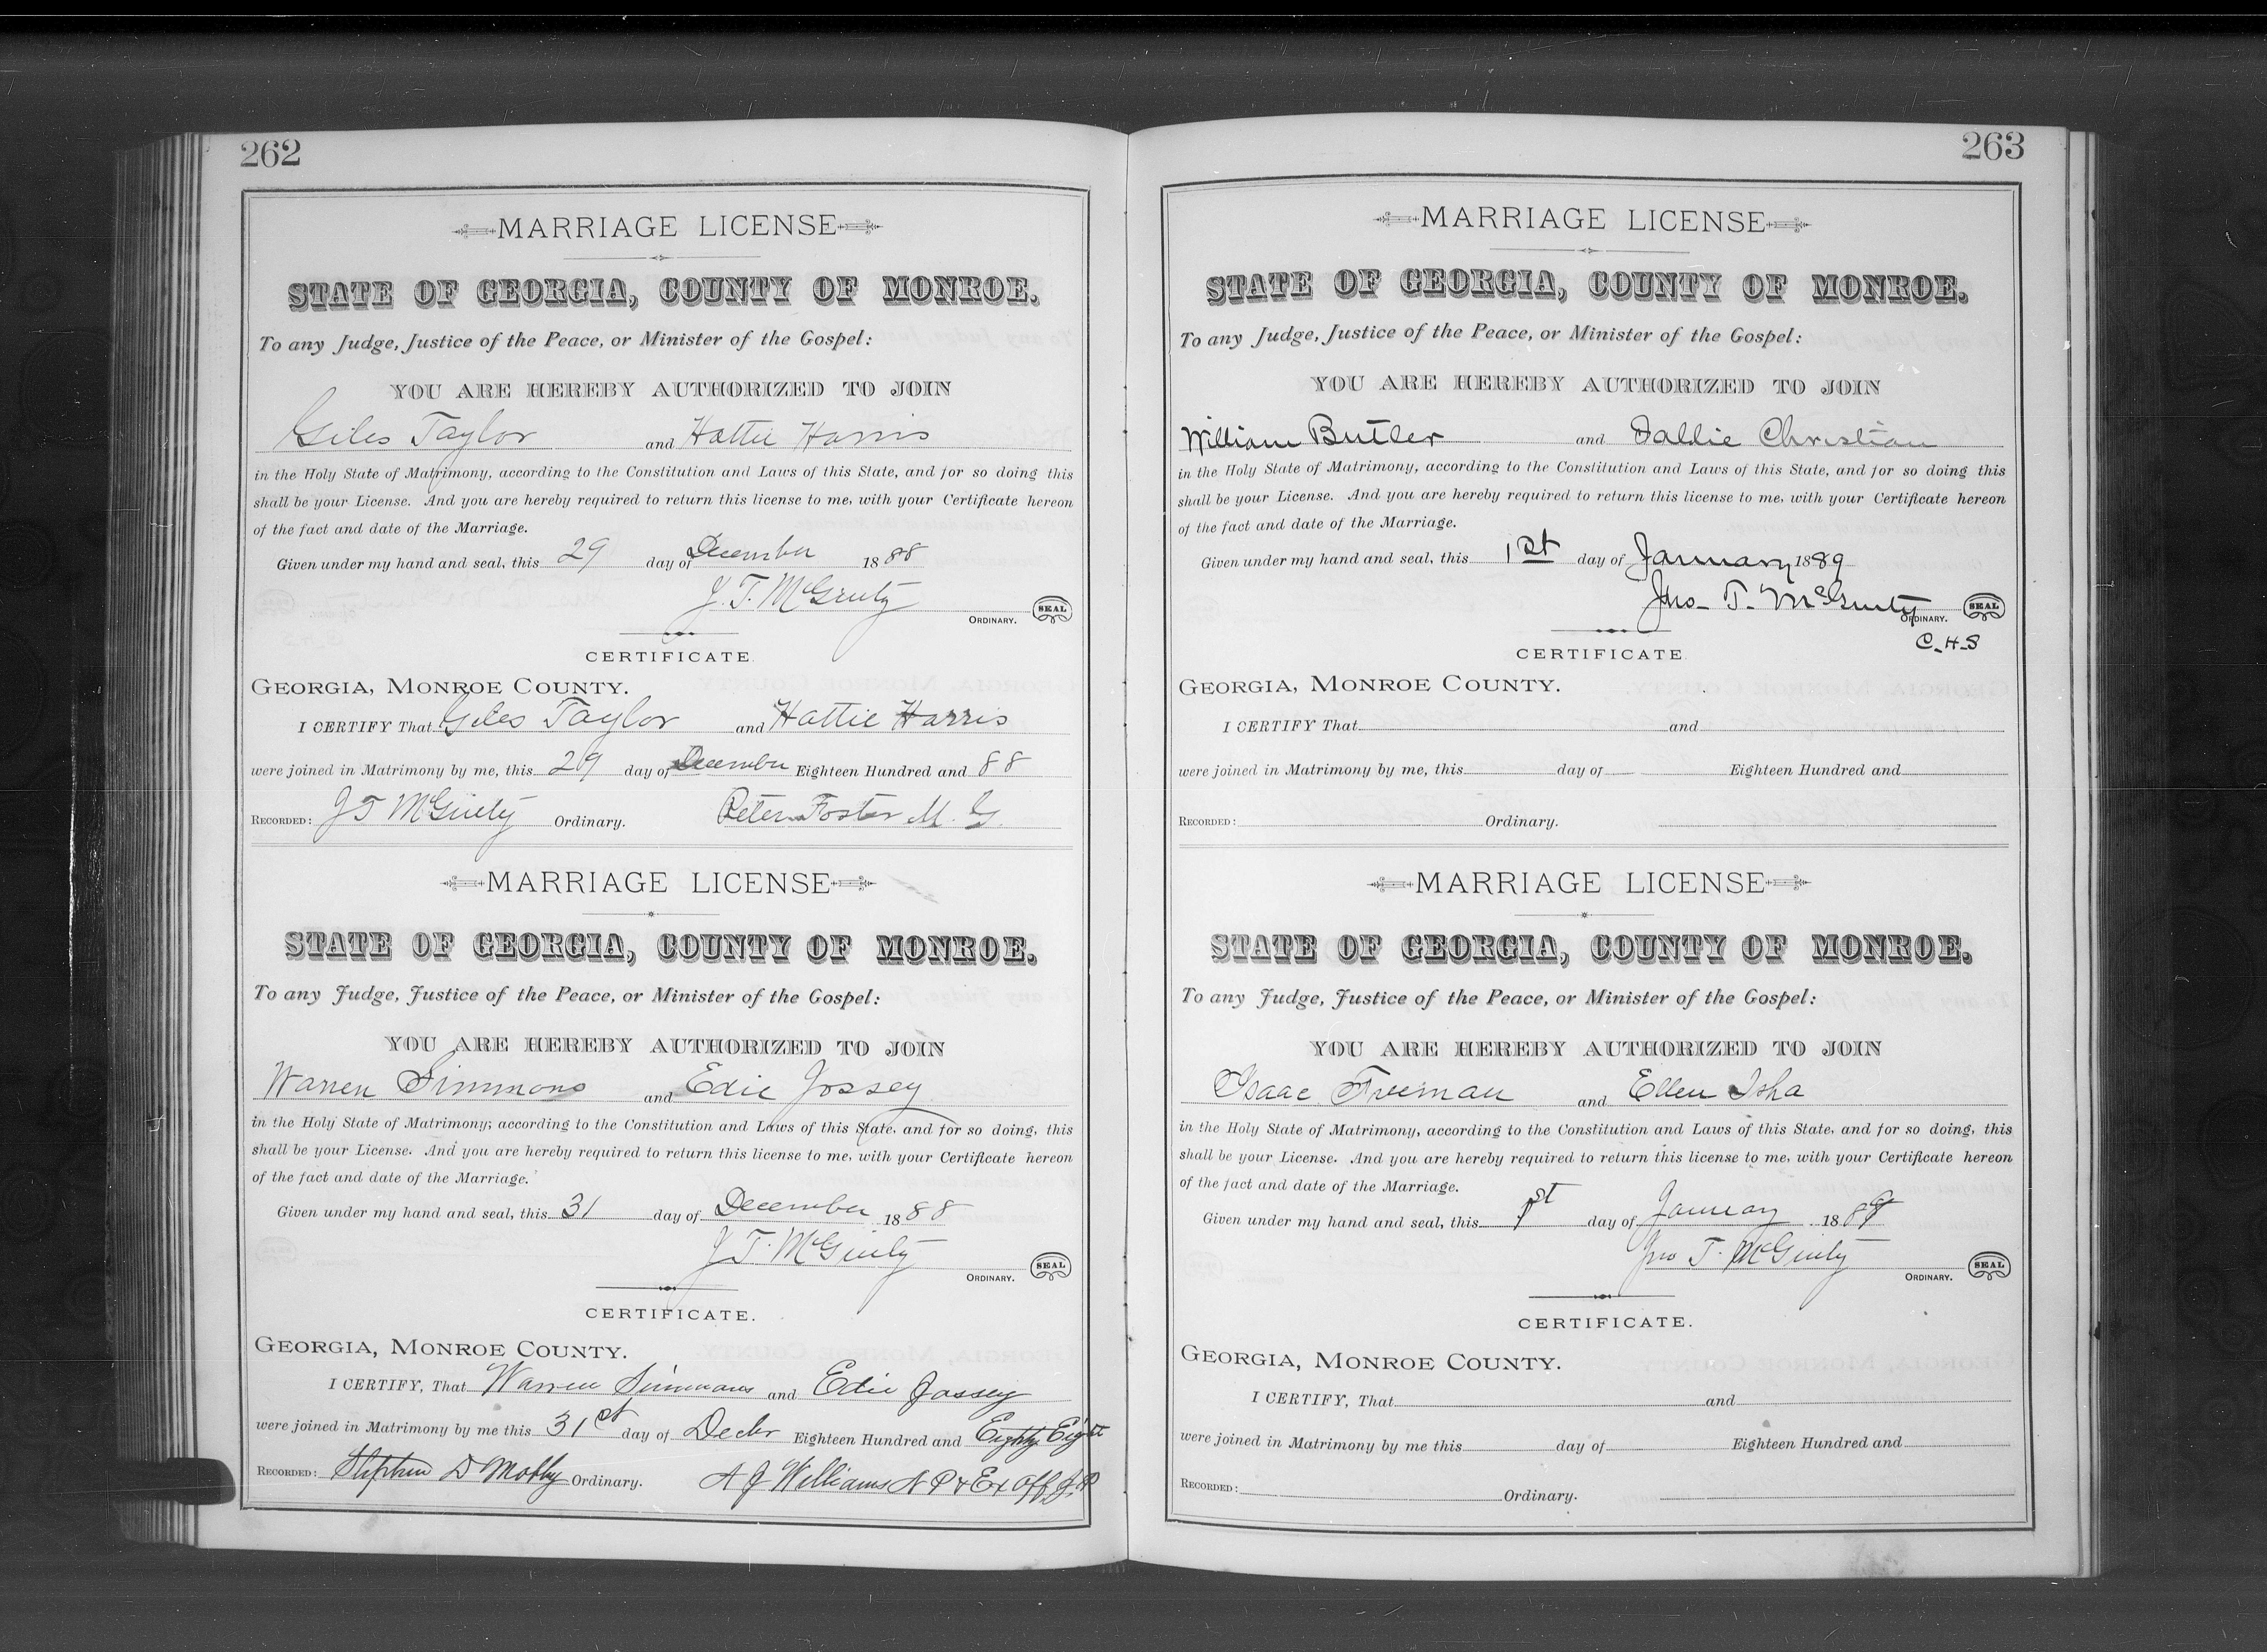 262
MARRIAGE LICENSE
STATE OF GEORGIA, COUNTY OF MONROE.
To any Judge, Justice of the Peace, or Minister of the Gospel:
YOU ARE HEREBY AUTHORIZED TO JOIN
Giles Taylor and Hattie Harris
in the Holy State of Matrimony, according to the Constitution and Laws of this State, and for so doing this
shall be your License. And you are hereby required to return this license to me, with your Certificate hereon
of the fact and date of the Marriage.
Given under my hand and seal, this 29 day of December 1888
J. T. McGinty
ORDINARY. SEAL
CERTIFICATE
GEORGIA, MONROE COUNTY.
I CERTIFY That Giles Taylor and Hattie Harris
were joined in Matrimony by me, this 29 day of December Eighteen Hundred and 88
RECORDED: J T McGinty Ordinary. Peter Foster M. G.
MARRIAGE LICENSE
STATE OF GEORGIA, COUNTY OF MONROE.
To any Judge, Justice of the Peace, or Minister of the Gospel:
YOU ARE HEREBY AUTHORIZED TO JOIN
Warren Simmons and Edie Jossey
in the Holy State of Matrimony; according to the Constitution and Laws of this State, and for so doing, this
shall be your License. And you are hereby required to return this license to me, with your Certificate hereon
of the fact and date of the Marriage.
Given under my hand and seal, this 31 day of December 1888
J T. McGinty
ORDINARY. SEAL
CERTIFICATE.
GEORGIA, MONROE COUNTY.
I CERTIFY, That Warren Simmons and Edie Jossey
were joined in Matrimony by me this 31st day of Decbr Eighteen Hundred and Eighty Eight
RECORDED: Stephen D Mobly Ordinary. A J Williams N P & Ex Off J.P.
263
MARRIAGE LICENSE
STATE OF GEORGIA, COUNTY OF MONROE.
To any Judge, Justice of the Peace, or Minister of the Gospel:
YOU ARE HEREBY AUTHORIZED TO JOIN
William Butler and Sallie Christian
in the Holy State of Matrimony, according to the Constitution and Laws of this State, and for so doing this
shall be your License. And you are hereby required to return this license to me, with your Certificate hereon
of the fact and date of the Marriage.
Given under my hand and seal, this 1st day of January 1889
Jno. T. McGinty
ORDINARY. SEAL
C.H.S
CERTIFICATE
GEORGIA, MONROE COUNTY.
I CERTIFY That and
were joined in Matrimony by me, this day of Eighteen Hundred and
RECORDED: Ordinary.
MARRIAGE LICENSE
STATE OF GEORGIA, COUNTY OF MONROE.
To any Judge, Justice of the Peace, or Minister of the Gospel:
YOU ARE HEREBY AUTHORIZED TO JOIN
Isaac Freeman and Ellen Isha
in the Holy State of Matrimony, according to the Constitution and Laws of this State, and for so doing, this
shall be your License. And you are hereby required to return this license to me, with your Certificate hereon
of the fact and date of the Marriage.
Given under my hand and seal, this 1st day of January 1889
Jno T. McGinty
ORDINARY. SEAL
CERTIFICATE.
GEORGIA, MONROE COUNTY.
I CERTIFY, That and
were joined in Matrimony by me this day of Eighteen Hundred and
RECORDED: Ordinary.